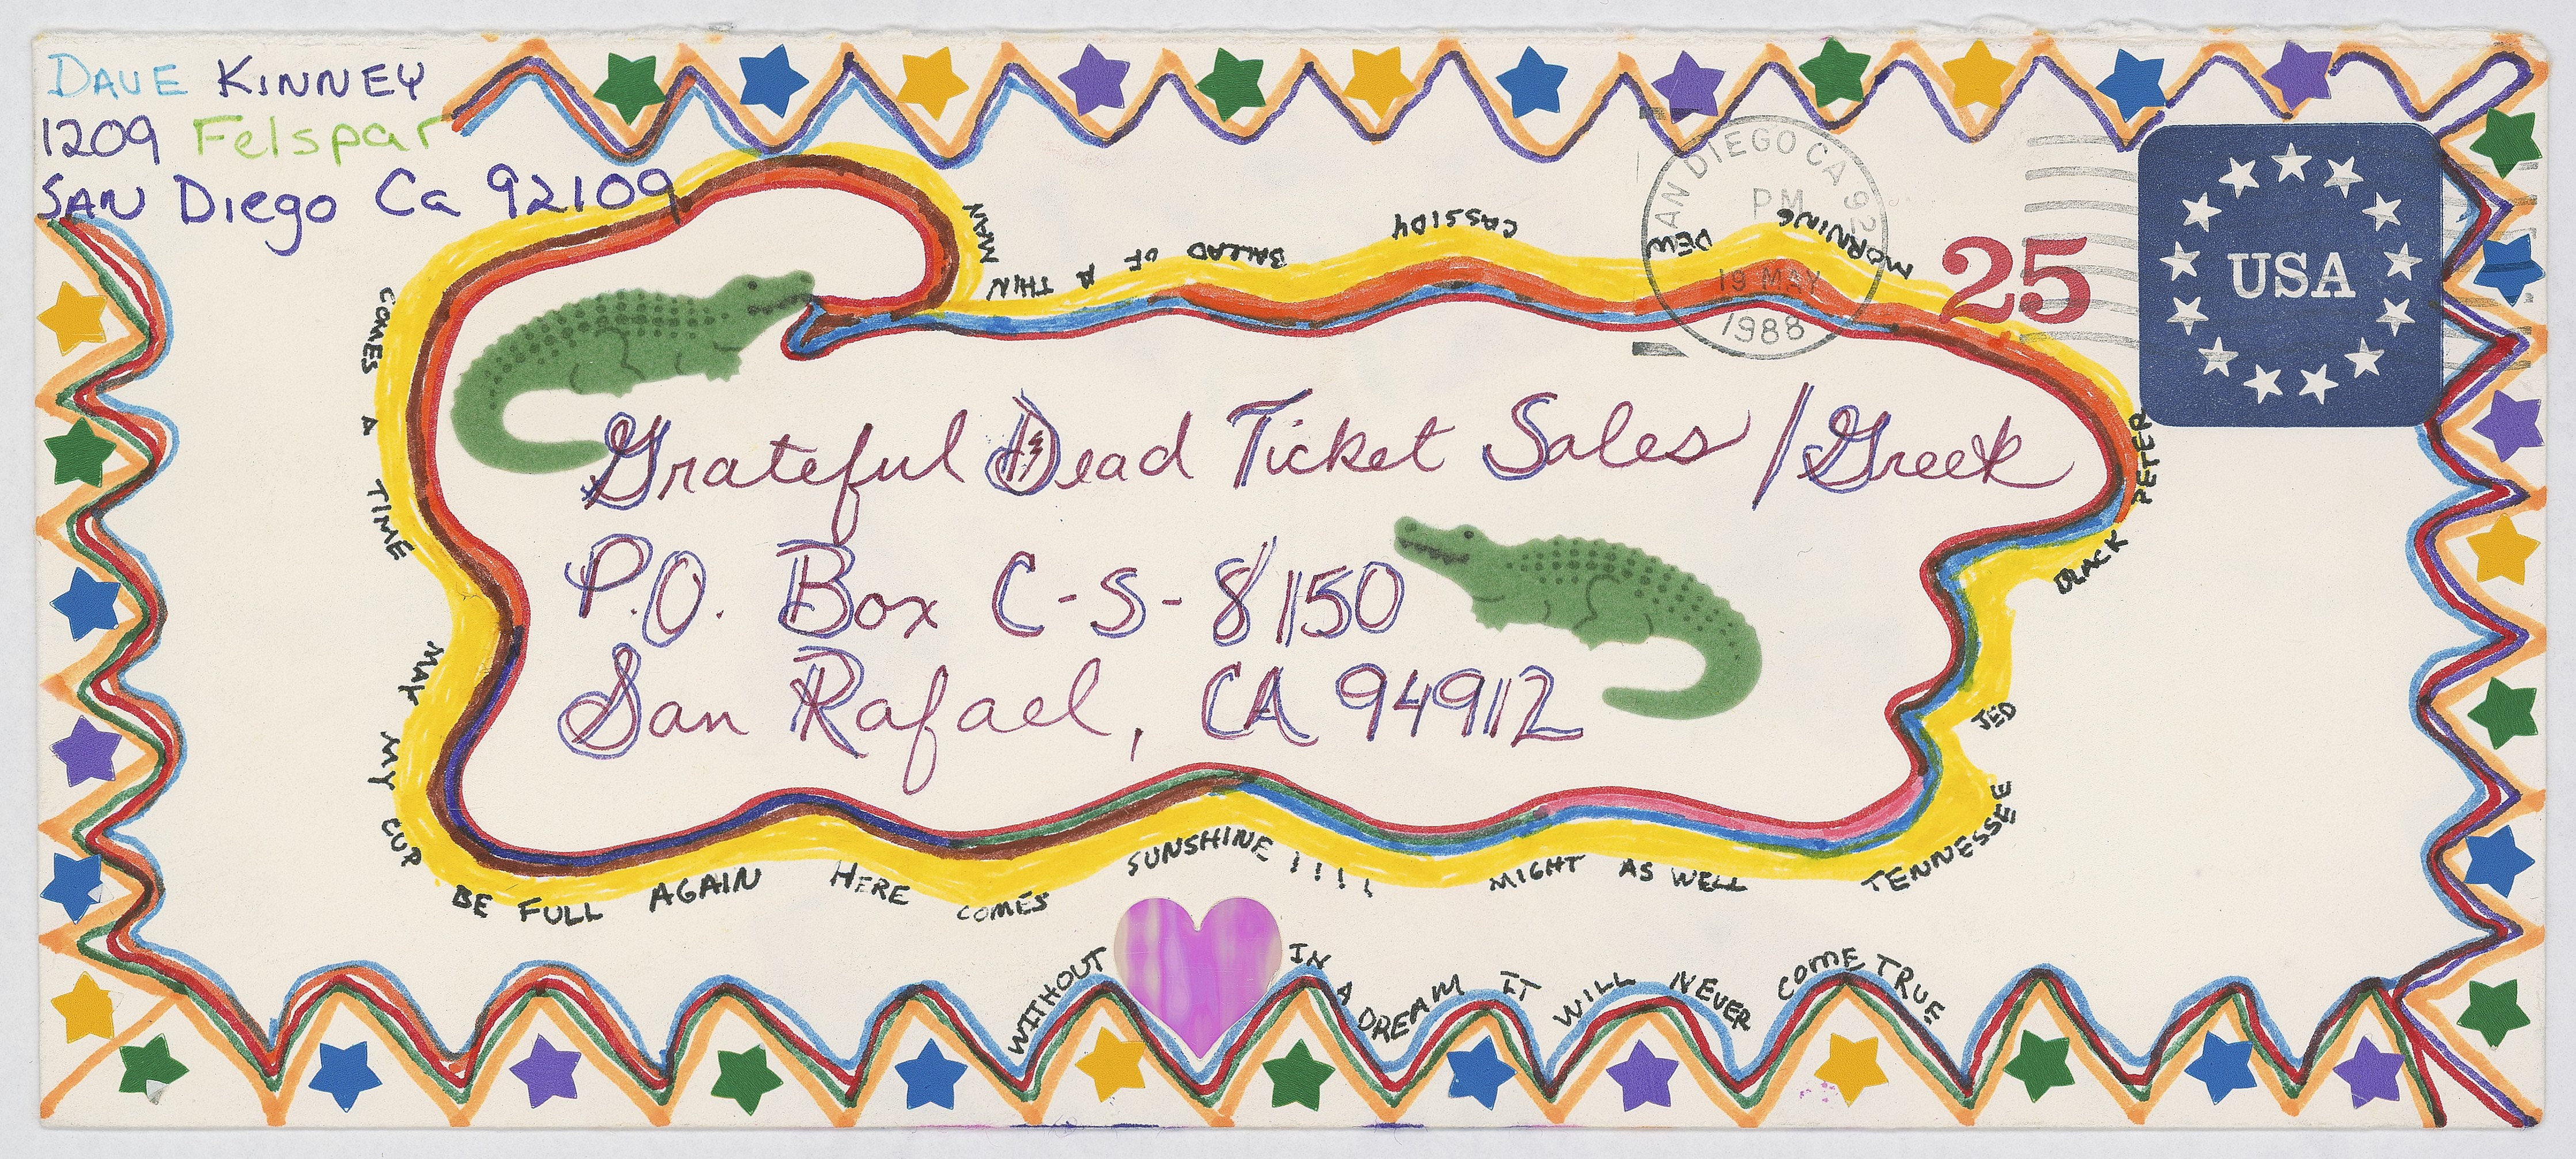 DAVE KINNEY
1209 Felspar
SAN Diego Ca 92109
SAN DIEGO CA 92
PM
19 MAY
1988
25
USA
Grateful Dead Ticket Sales / Greek
P.O. Box C-S-8150
San Rafael, CA 94912
COMES A TIME
MAY MY CUP BE FULL AGAIN HERE COMES SUNSHINE !!!!
MIGHT AS WELL
TENNESSEE JED
BLACK PETER
MORNING DEW
CASSIDY
BALLAD OF A THIN MAN
WITHOUT IN A DREAM IT WILL NEVER COME TRUE